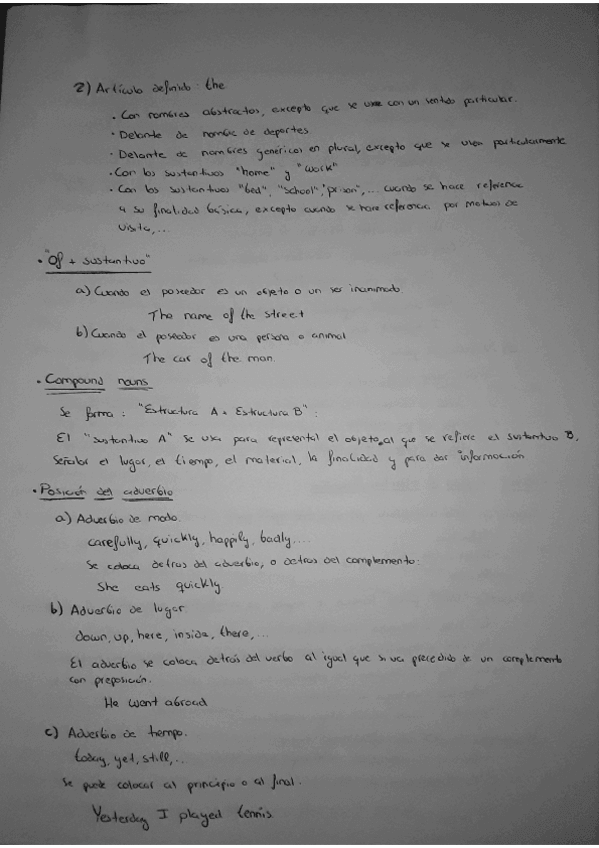 2) Artículo definido: the
· Con nombres abstractos, excepto que se use con un sentido particular.
· Delante de nombre de deportes
· Delante de nombres genéricos en plural, excepto que se usen particularmente
· Con los sustantivos "home" y "work"
· Con los sustantivos "bed", "school", "prison",... cuando se hace referencia
a su finalidad básica, excepto cuando se hace referencia por motivos de
visita,...
· "Of + sustantivo"
a) Cuando el poseedor es un objeto o un ser inanimado
The name of the street
b) Cuando el poseedor es una persona o animal
The car of the man.
· Compound nouns
Se forma: "Estructura A + Estructura B".
El "sustantivo A" se usa para representar el objeto al que se refiere el sustantivo B,
señalar el lugar, el tiempo, el material, la finalidad y para dar información
· Posición del adverbio
a) Adverbio de modo.
carefully, quickly, happily, badly....
Se coloca detras del adverbio, o detras del complemento:
She eats quickly
b) Adverbio de lugar
down, up, here, inside, there,...
El adverbio se coloca detrás del verbo al igual que si va precedido de un complemento
con preposición.
He went abroad
c) Adverbio de tiempo.
today, yet, still,...
Se puede colocar al principio o al final.
Yesterday I played tennis